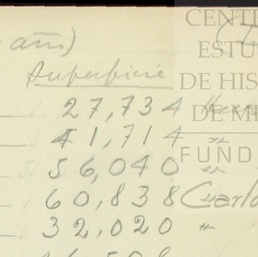 año)
Superficie
27,734
41,714 "
56,040 "
60,838 Carlo
32,020 "
CENT
ESTU
DE HIS
DE M
FUND